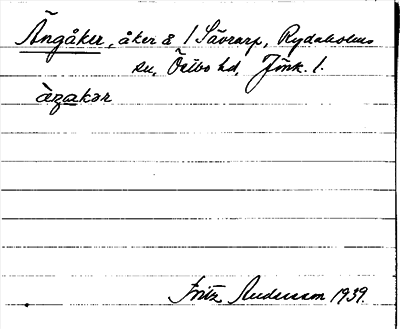 Ängåker, åker å 1 Sävrarp, Rydaholms
sn, Östbo hd, Jönk. l.
àŋakər
Fritz Andersson 1939.